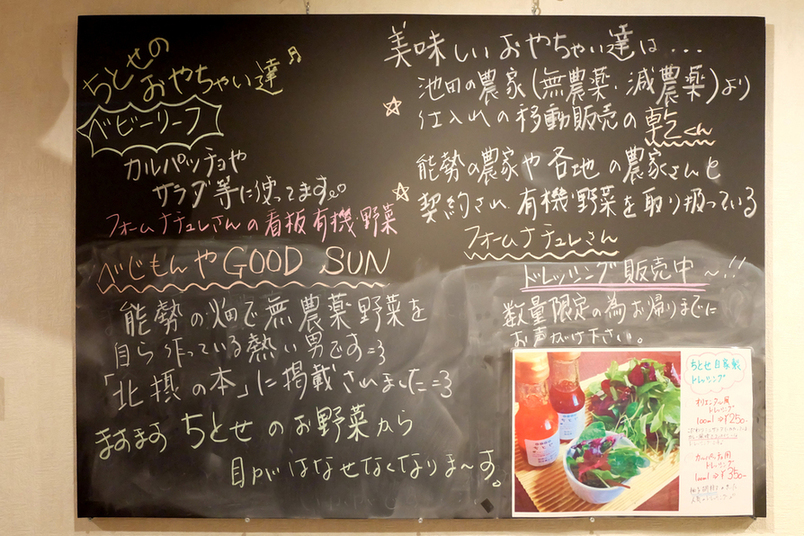 ちとせの
おやちゃい達♪
ベビーリーフ
カルパッチョや
サラダ等に使ってます。
フォームナチュレさんの看板有機・野菜
べじもんやGOOD SUN
能勢の畑で無農薬野菜を
自ら作っている熱い男です=3
「北摂の本」に掲載されました=3
ますます ちとせ のお野菜から
目がはなせなくなりま〜す。
美味しいおやちゃい達は・・・・
☆ 池田の農家(無農薬・減農薬)より
仕入れの移動販売の乾くん
☆ 能勢の農家や各地の農家さんと
契約され 有機・野菜を取り扱っている
フォームナチュレさん
ドレッシング販売中〜!!
数量限定の為お帰りまでに
お声がけ下さい。
ちとせ自家製
ドレッシング
オリエンタル風
ドレッシング
100ml ¥250-
ドレッシング
100ml ¥350-